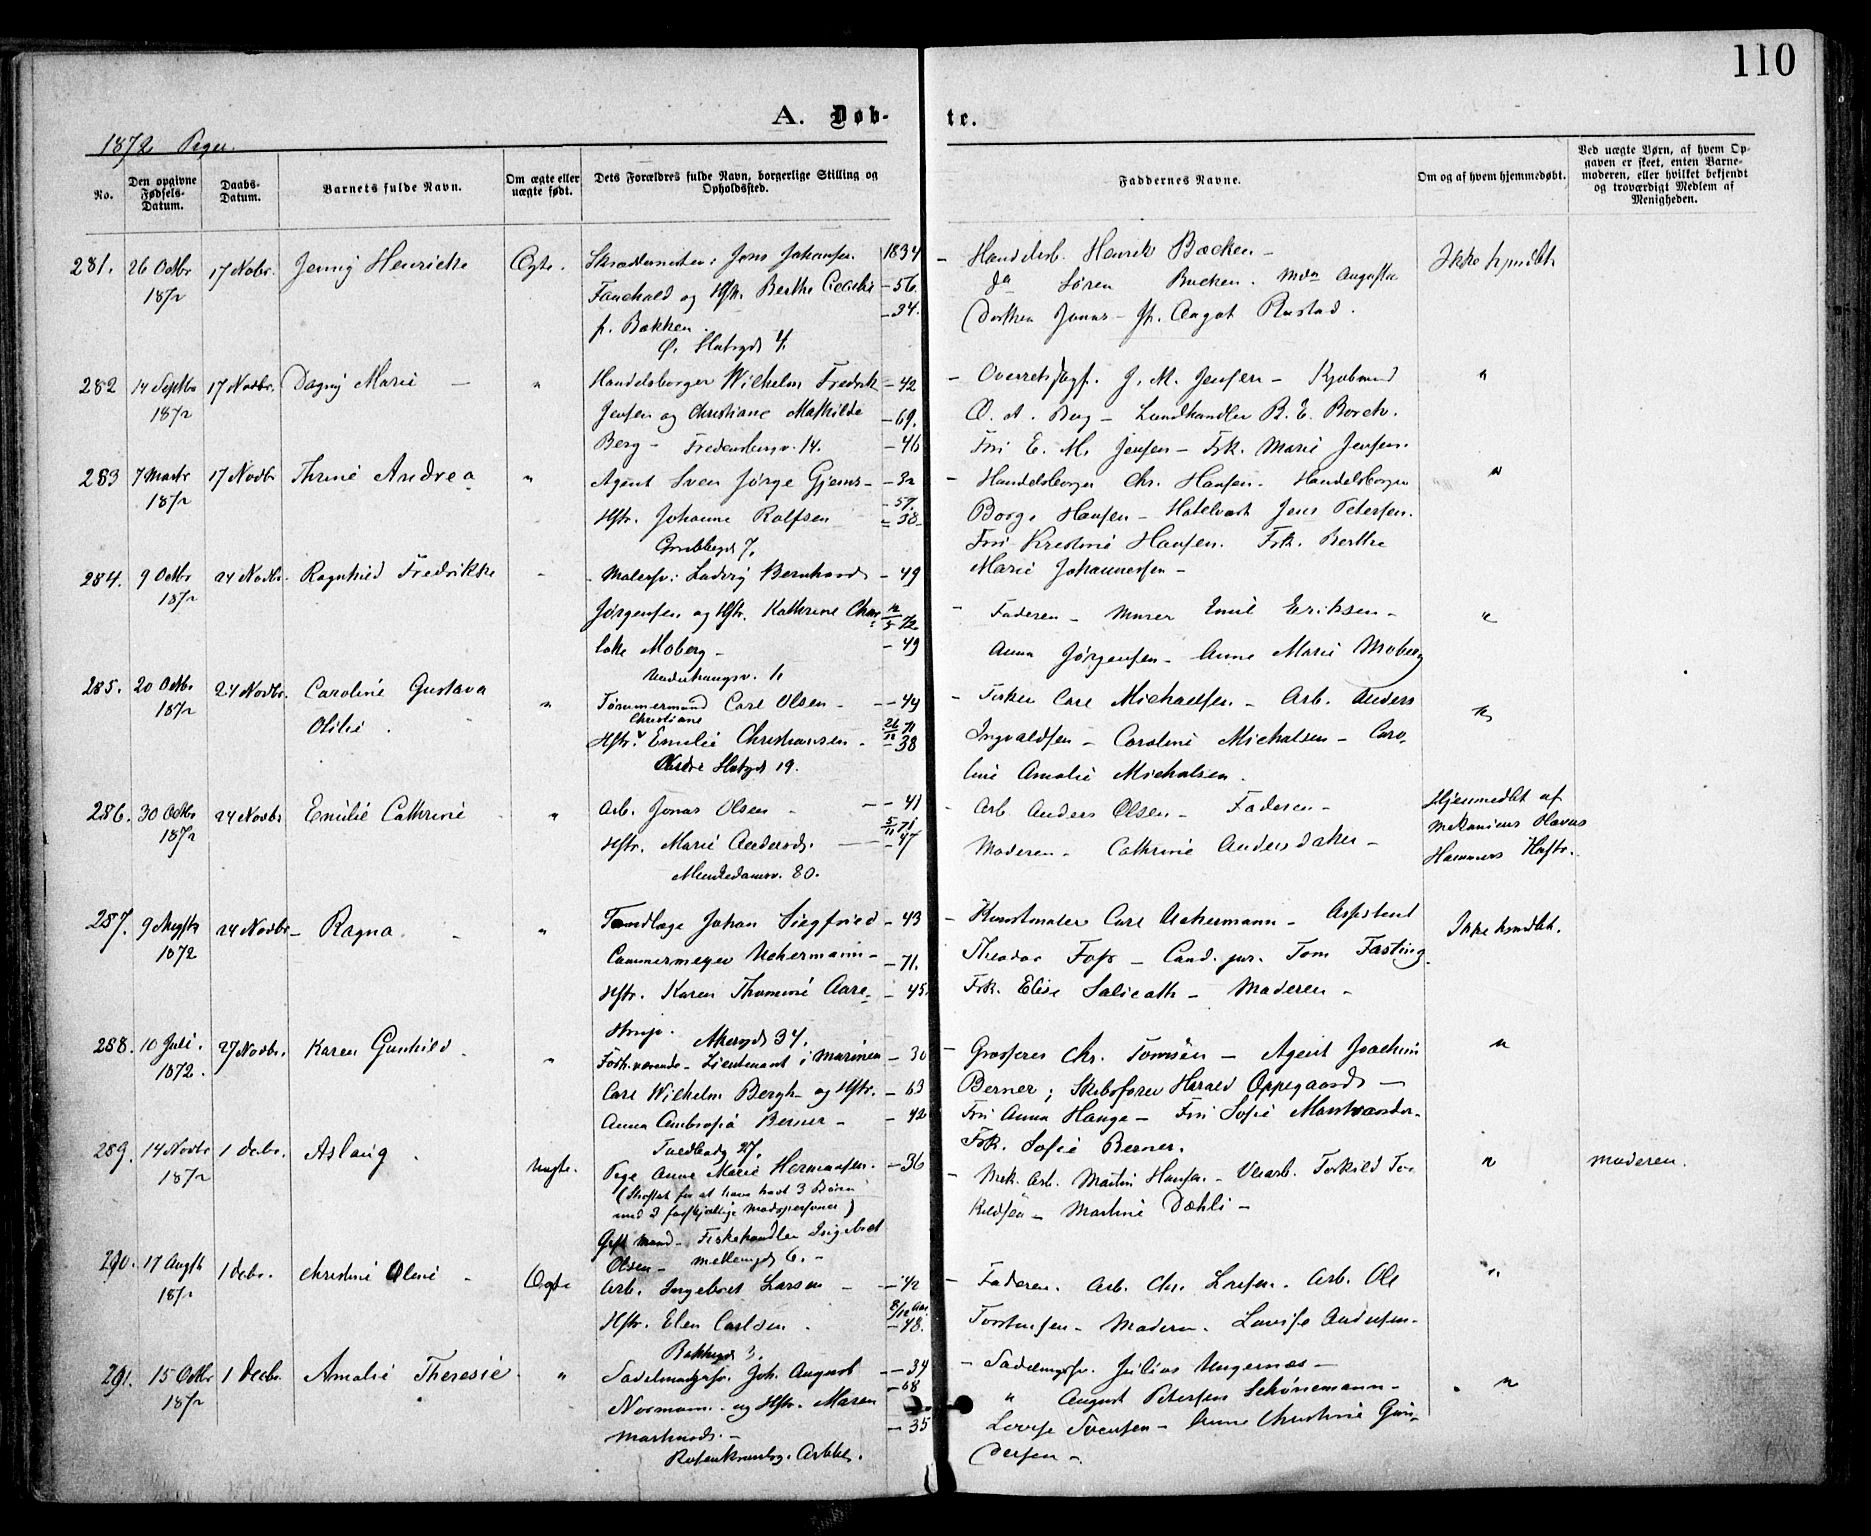 110
A. Døb- te.
1872 Piger.
No.
Den opgivne Fødsels-Datum.
Daabs-Datum.
Barnets fulde Navn.
Om ægte eller uægte født.
Dets Forældres fulde Navn, borgerlige Stilling og Opholdssted.
Faddernes Navne.
Om og af hvem hjemmedøbt.
Ved uægte Børn, af hvem Opgaven er skeet, enten Barnemoderen, eller hvilket bekjendt og troværdigt Medlem af Menigheden.
281. 26 Octbr 17 Novbr. Jenny Henrikke Ægte. Johansen 1834 – Handelsb. Henrik Backen –
1872 og Hstr. Berthe Cecilie – 56. Do Søren Backen. Augusta
f. Bakken. – 34. Dorthea Jonas – Fr. Aagot Rustad.
Ø. Slotsgd 4.
282 14 Septbr 17 Novbr. Dagny Marie – " Handelsborger Wilhelm Fredrik – 42 – Overretssagf. J. M. Jensen – "
1872 Jensen og Christiane Mathilde – 69. Landhandler B. E.
Berg – Fredensborgv. 14. – 46 Fru E. M. Jensen – Frk. Marie Jensen.
283 7 17 Novbr Thrine Andrea " Agent Sven Jørge Gjems – 32 – Handelsborger Chr. Hansen. Handelsborger "
1872 57. Borge Hansen – Jens Petersen.
Hstr. Johanne Rolfsen – 38. Fru Kristine Hansen. Frk. Berthe
Grubbegd 7. Marie Johannessen –
284. 9 Octbr 24 Novbr. Ragnhild Fredrikke " Malersv: Ludvig Bernhard – 49
1872 Jørgensen og Hstr. Kathrine Char 72 – Faderen – Murer Emil Eriksen – "
lotte Moberg – – 49 Anna Jørgensen – Anne Marie Moberg
285. 20 Octbr 24 Novbr. Caroline Gustava " Tømmermand Carl Olsen – – 44 – Carl Michaelsen – Arb. Anders "
1872 Christiane 26/11 71
Olilie. Hstr. Emilie Christiansen – – 38 Ingvaldsen – Caroline Michalsen – Caro
19. line Amalie Michalsen.
286. 30 Octbr 24 Novbr Emilie Cathrine " Arb. Jonas Olsen – – – 41 – Arb Anders Olsen – Faderen – Hjemmedøbt af
1872 5/11 71 Mekanicus
Hstr. Marie Andersd. – – 47 Moderen – Cathrine Andersdatter – Hammers Hustr.
Munkedamsv. 80.
287. 9 Augsts 24 Novbr – Ragna – " Tandlæge Johan Siegfried – 43 – Kunstmaler Carl Uchermann – Assistent Ikke hjmdbt.
1872 Cammermeyer Uchermann – – 71. Theodor Foss – Cand. jur. Tom Fasting
Hstr. Karen Thomine Aare – 45 Frk. Elise Salicath – Moderen –
strup. Akersgd 34.
288. 10 Juli. 27 Novbr. Karen Gunhild. " Forhværende – Lieutenant i Marinen – 30 – Grosserer Chr. Tønsen – Agent Joachim "
1872. Carl Wilhelm Bergh – og Hstr. – 63 Berner; Skibsfører Harald Oppegaard –
Anna Ambrosia Berner – – 42 Fru Anna Hauge – Fru Sofie
Toldbodg 27. Frk. Sofie Berner.
289. 14 Novbr 1 Decbr. Aslaug. Uægte. Pige Anne Marie Hermansen. – 36 – Mek. Arb. Martin Hansen – Torkild Tor " Moderen.
1872 (Straffet for at have havt 3 Børn
med 2 forskjellige Mandspersoner) kildsen – Martine Dæhli –
Gift Mand – Fiskehandler Ingebret
Olsen – Mellemgd 6. –
290. 17 Augst 1 Decbr. Christine Oline – Ægte Arb. Ingebret Larsen – – 42 – Faderen. Arb. Chr. Arb. Ole "
1872 Hstr. Elen Carlsen. – 48. Torstensen – Moderen. Lovise Andersen –
Bakkegd 3.
291. 15 Octbr 1 Decbr. Amalie Theresie. " Sadelmagersv. Joh. August – 34 – Sadelmgsv. Julius Ungernæs –
1872 – 68 " August Petersen Schønemann – "
Normann. og Hstr. Maren
Martinsd. – – 35 Lovise Svensen – Anne Christine Gun
dersen –